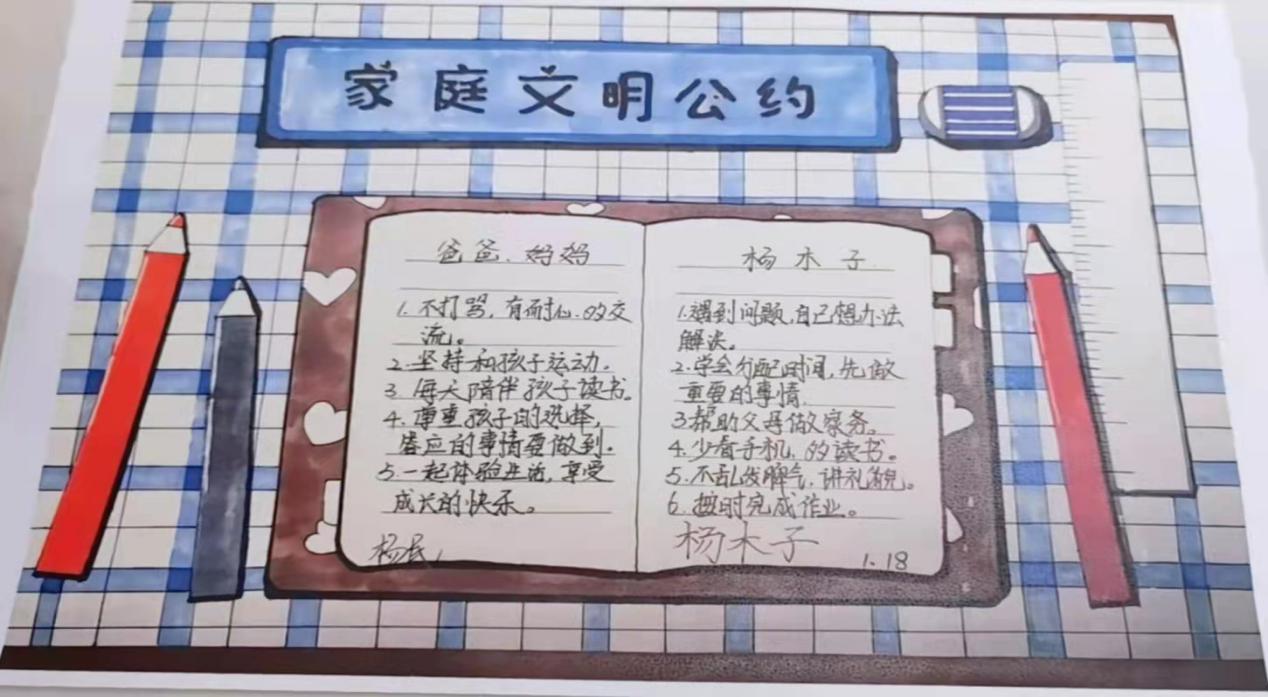 家庭文明公约
爸爸、妈妈
1. 不打骂，有耐心的交
流。
2. 坚持和孩子运动。
3. 每天陪伴孩子读书。
4. 尊重孩子的选择，
答应的事情要做到。
5. 一起体验生活，享受
成长的快乐。
杨木子
1. 遇到问题，自己想办法
解决。
2. 学会分配时间，先做
重要的事情.
3 帮助父母做家务。
4. 少看手机，的读书。
5. 不乱发脾气，讲礼貌。
6. 按时完成作业。
杨木子
1.18